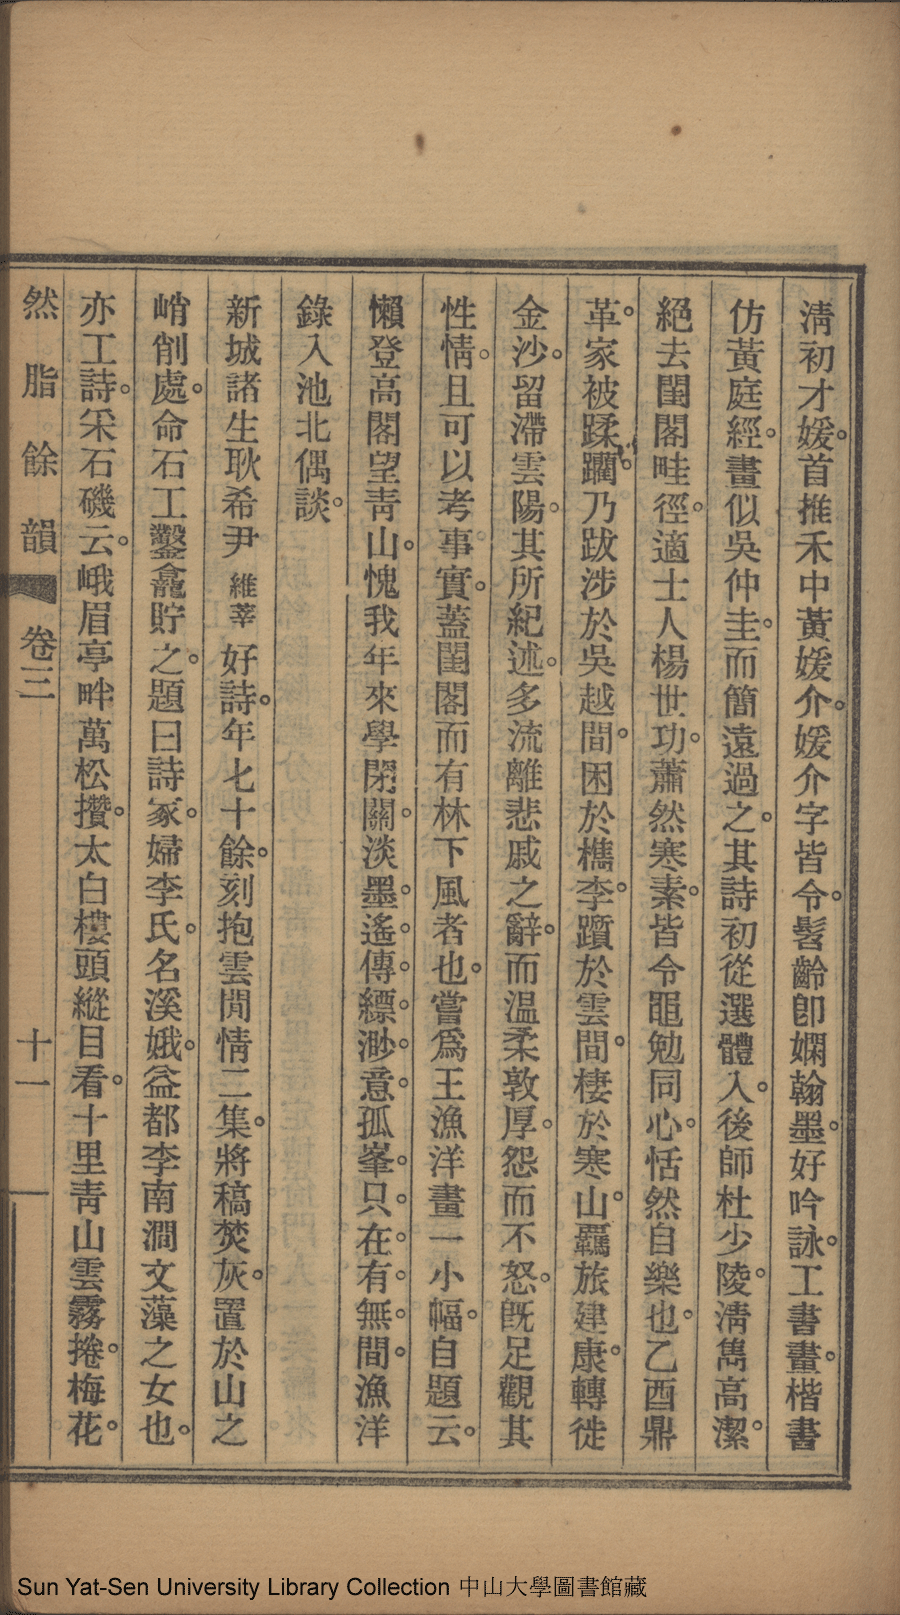 清初才媛。首推禾中黃媛介。媛介字皆令。髫齡卽嫻翰墨。好吟詠。工書畫。楷書
仿黃庭經。畫似吳仲圭。而簡遠過之。其詩初從選體入。後師杜少陵。淸雋高潔。
絕去閨閣畦徑。適士人楊世功。蕭然寒素。皆令黽勉同心。恬然自樂也。乙酉鼎
革。家被蹂躪。乃跋涉於吳越間。困於檇李。躓於雲間。棲於寒山。羈旅建康。轉徙
金沙。留滯雲陽。其所紀述。多流離悲戚之辭。而温柔敦厚。怨而不怒。旣足觀其
性情。且可以考事實。蓋閨閣而有林下風者也。嘗爲王漁洋畫一小幅。自題云。
懶登高閣望靑山。愧我年來學閉關。淡墨。遙。傳。縹。渺。意。孤峯。只。在。有。無。間。漁洋
錄入池北偶談。
新城諸生耿希尹維莘好詩。年七十餘。刻抱雲閒情二集。將稿焚灰。置於山之
峭削處。命石工鑿龕貯之。題曰詩冢。婦李氏。名溪娥。益都李南澗文藻之女也。
亦工詩。采石磯云。峨眉亭畔萬松攢。太白樓頭縱目看。十里靑山雲霧捲。梅花。
然脂餘韻 卷三 十一
Sun Yat-Sen University Library Collection 中山大學圖書館藏